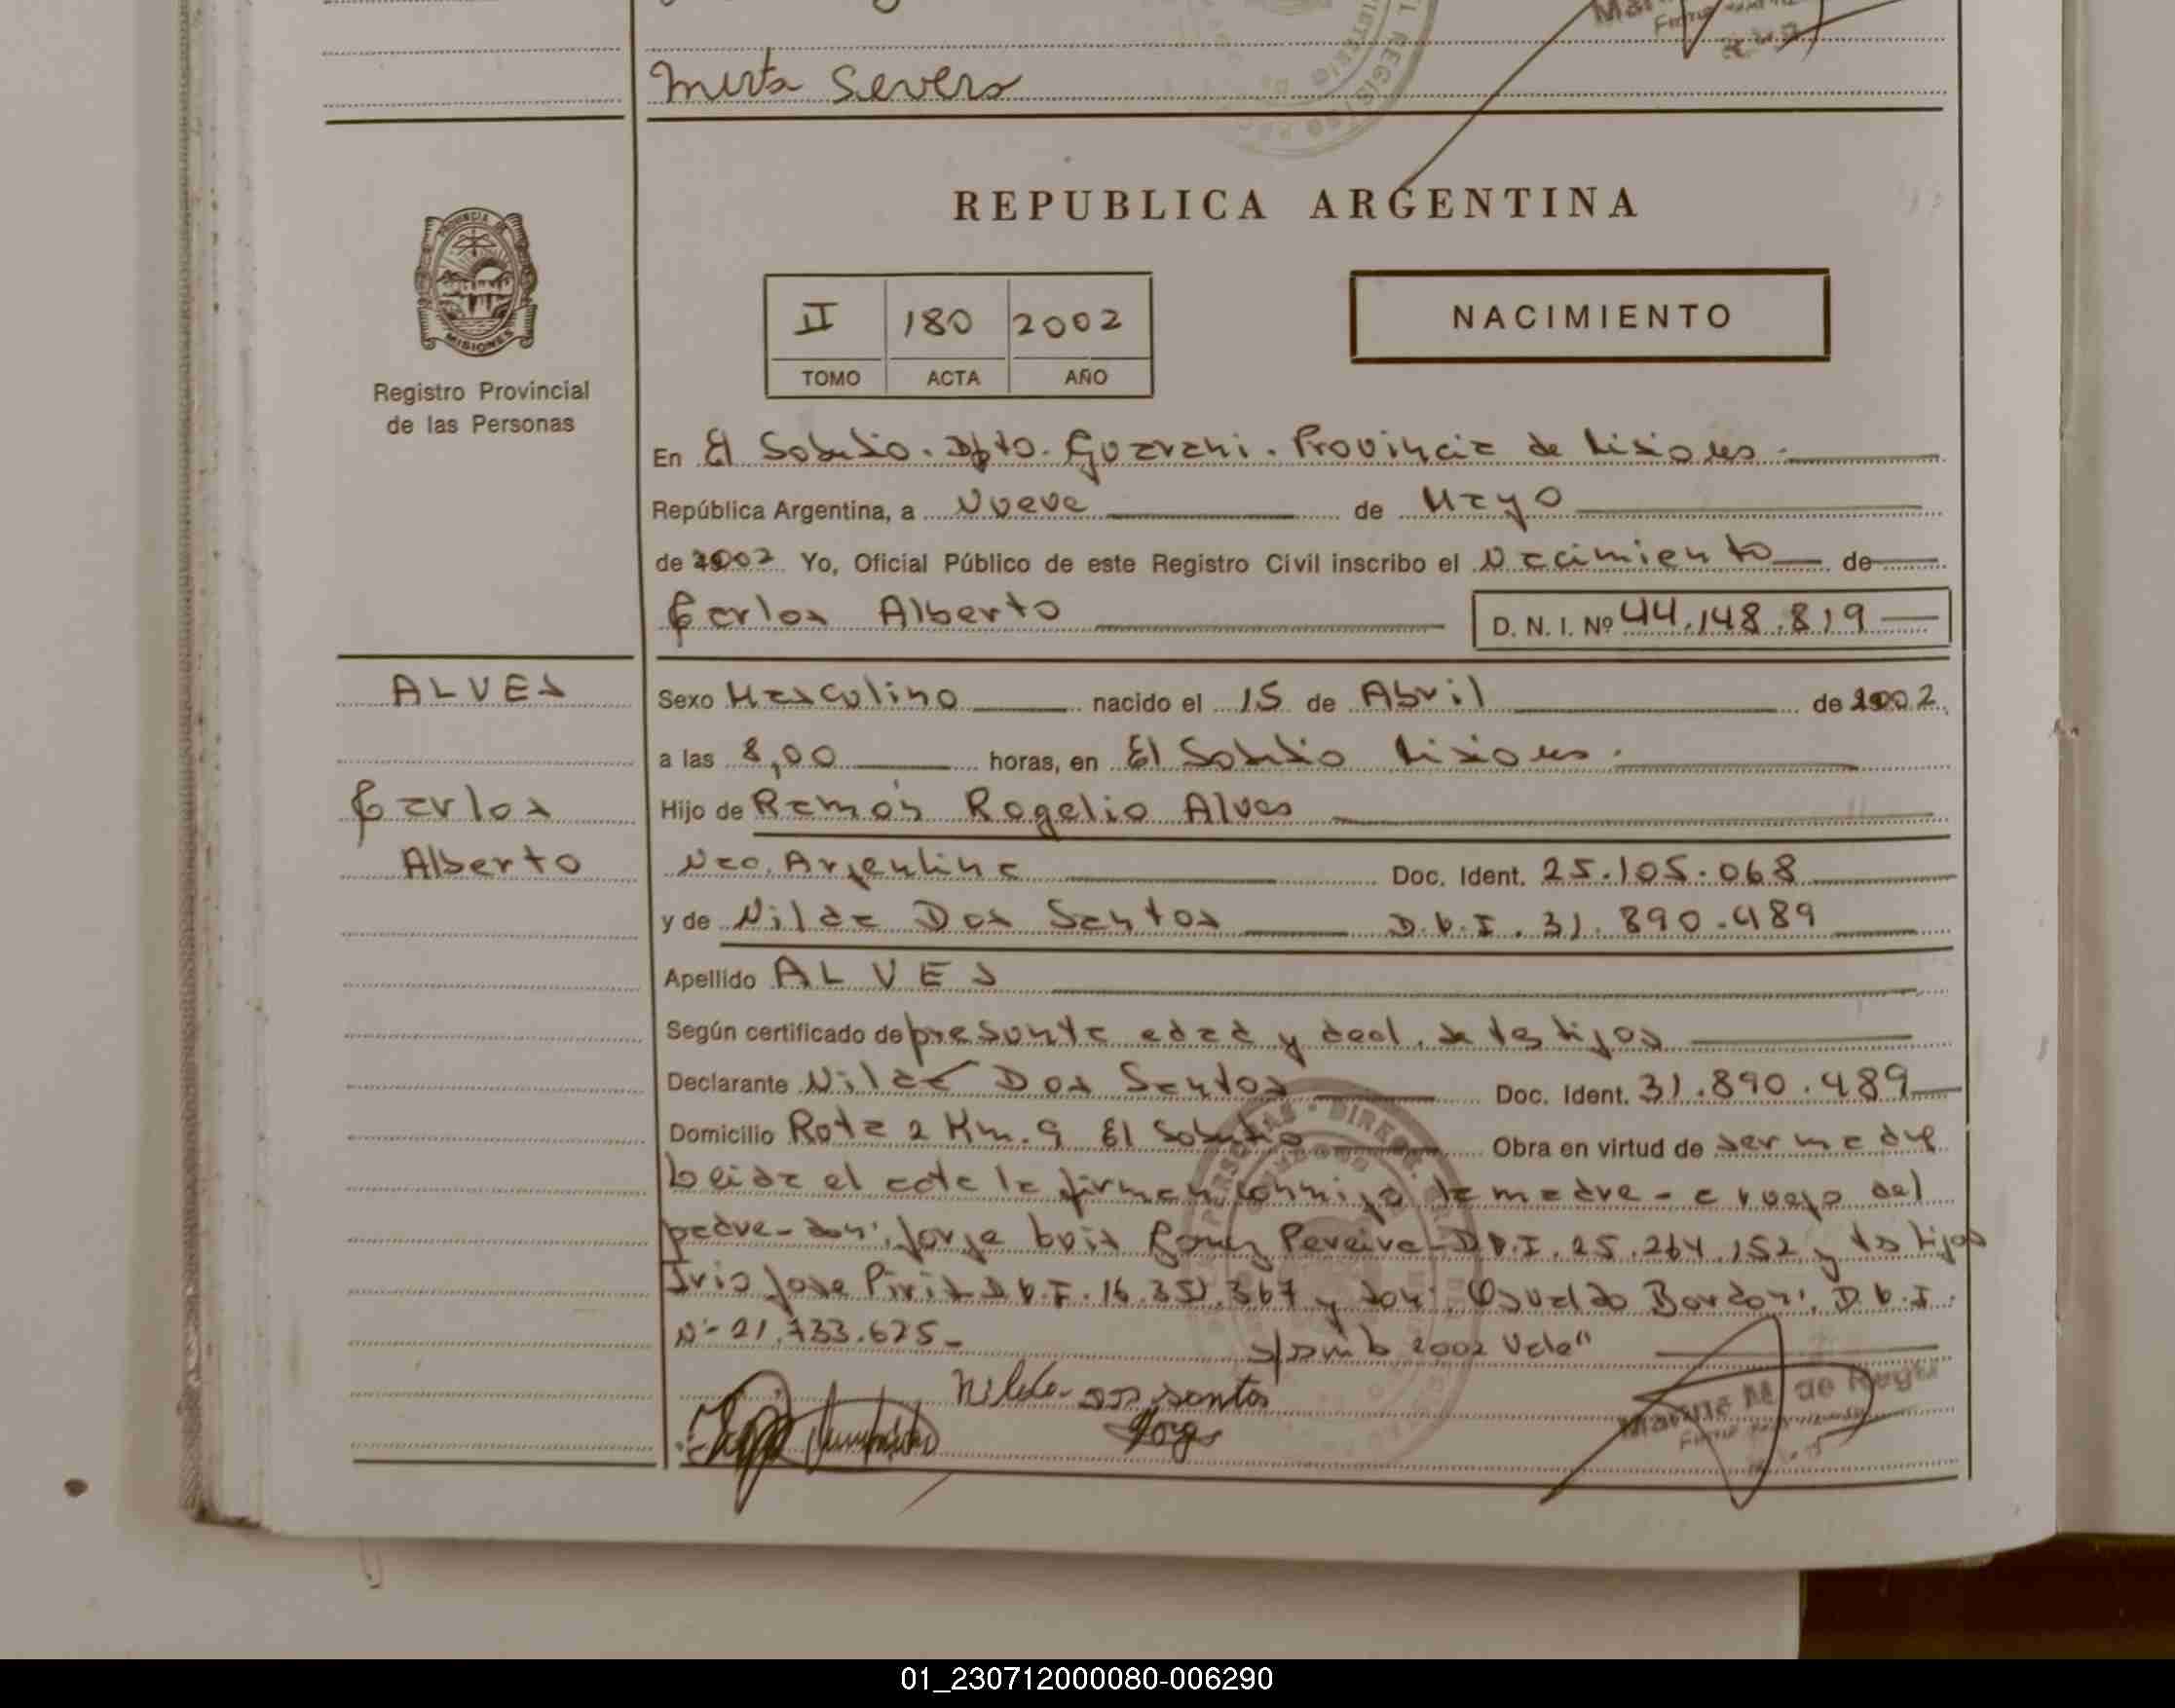 Mirta Severo
REPUBLICA ARGENTINA
PROVINCIA DE
MISIONES
Registro Provincial
de las Personas
II 180 2002
TOMO ACTA AÑO
NACIMIENTO
En El Soberbio. Dpto. Guarani. Provincia de Misiones.
República Argentina, a Nueve de Mayo
de 2002 Yo, Oficial Público de este Registro Civil inscribo el Nacimiento de
Carlos Alberto D. N. I. Nº 44.148.819
ALVES
Sexo Masculino nacido el 15 de Abril de 2002
a las 8,00 horas, en El Soberbio Misiones.
Carlos
Hijo de Ramón Rogelio Alves
Alberto
Nac. Argentina Doc. Ident. 25.105.068
y de Nilda Dos Santos D.N.I. 31.890.489
Apellido ALVES
Según certificado de presunta edad y decl. de testigos
Declarante Nilda Dos Santos Doc. Ident. 31.890.489
Domicilio Ruta 2 Km. 9 El Soberbio Obra en virtud de ser madre
Leida el acta la firman conmigo la madre - a ruego del
padre - don: Jorge Luis Gomez Pereira - D.N.I. 25.264.152 y testigos
Jose D.N.I. 16.351.367 y don: Osvaldo Bordon: D.N.I.
Nº 21.733.625.
2002 Vale"
Nilda dos santos
Jorge
01_230712000080-006290